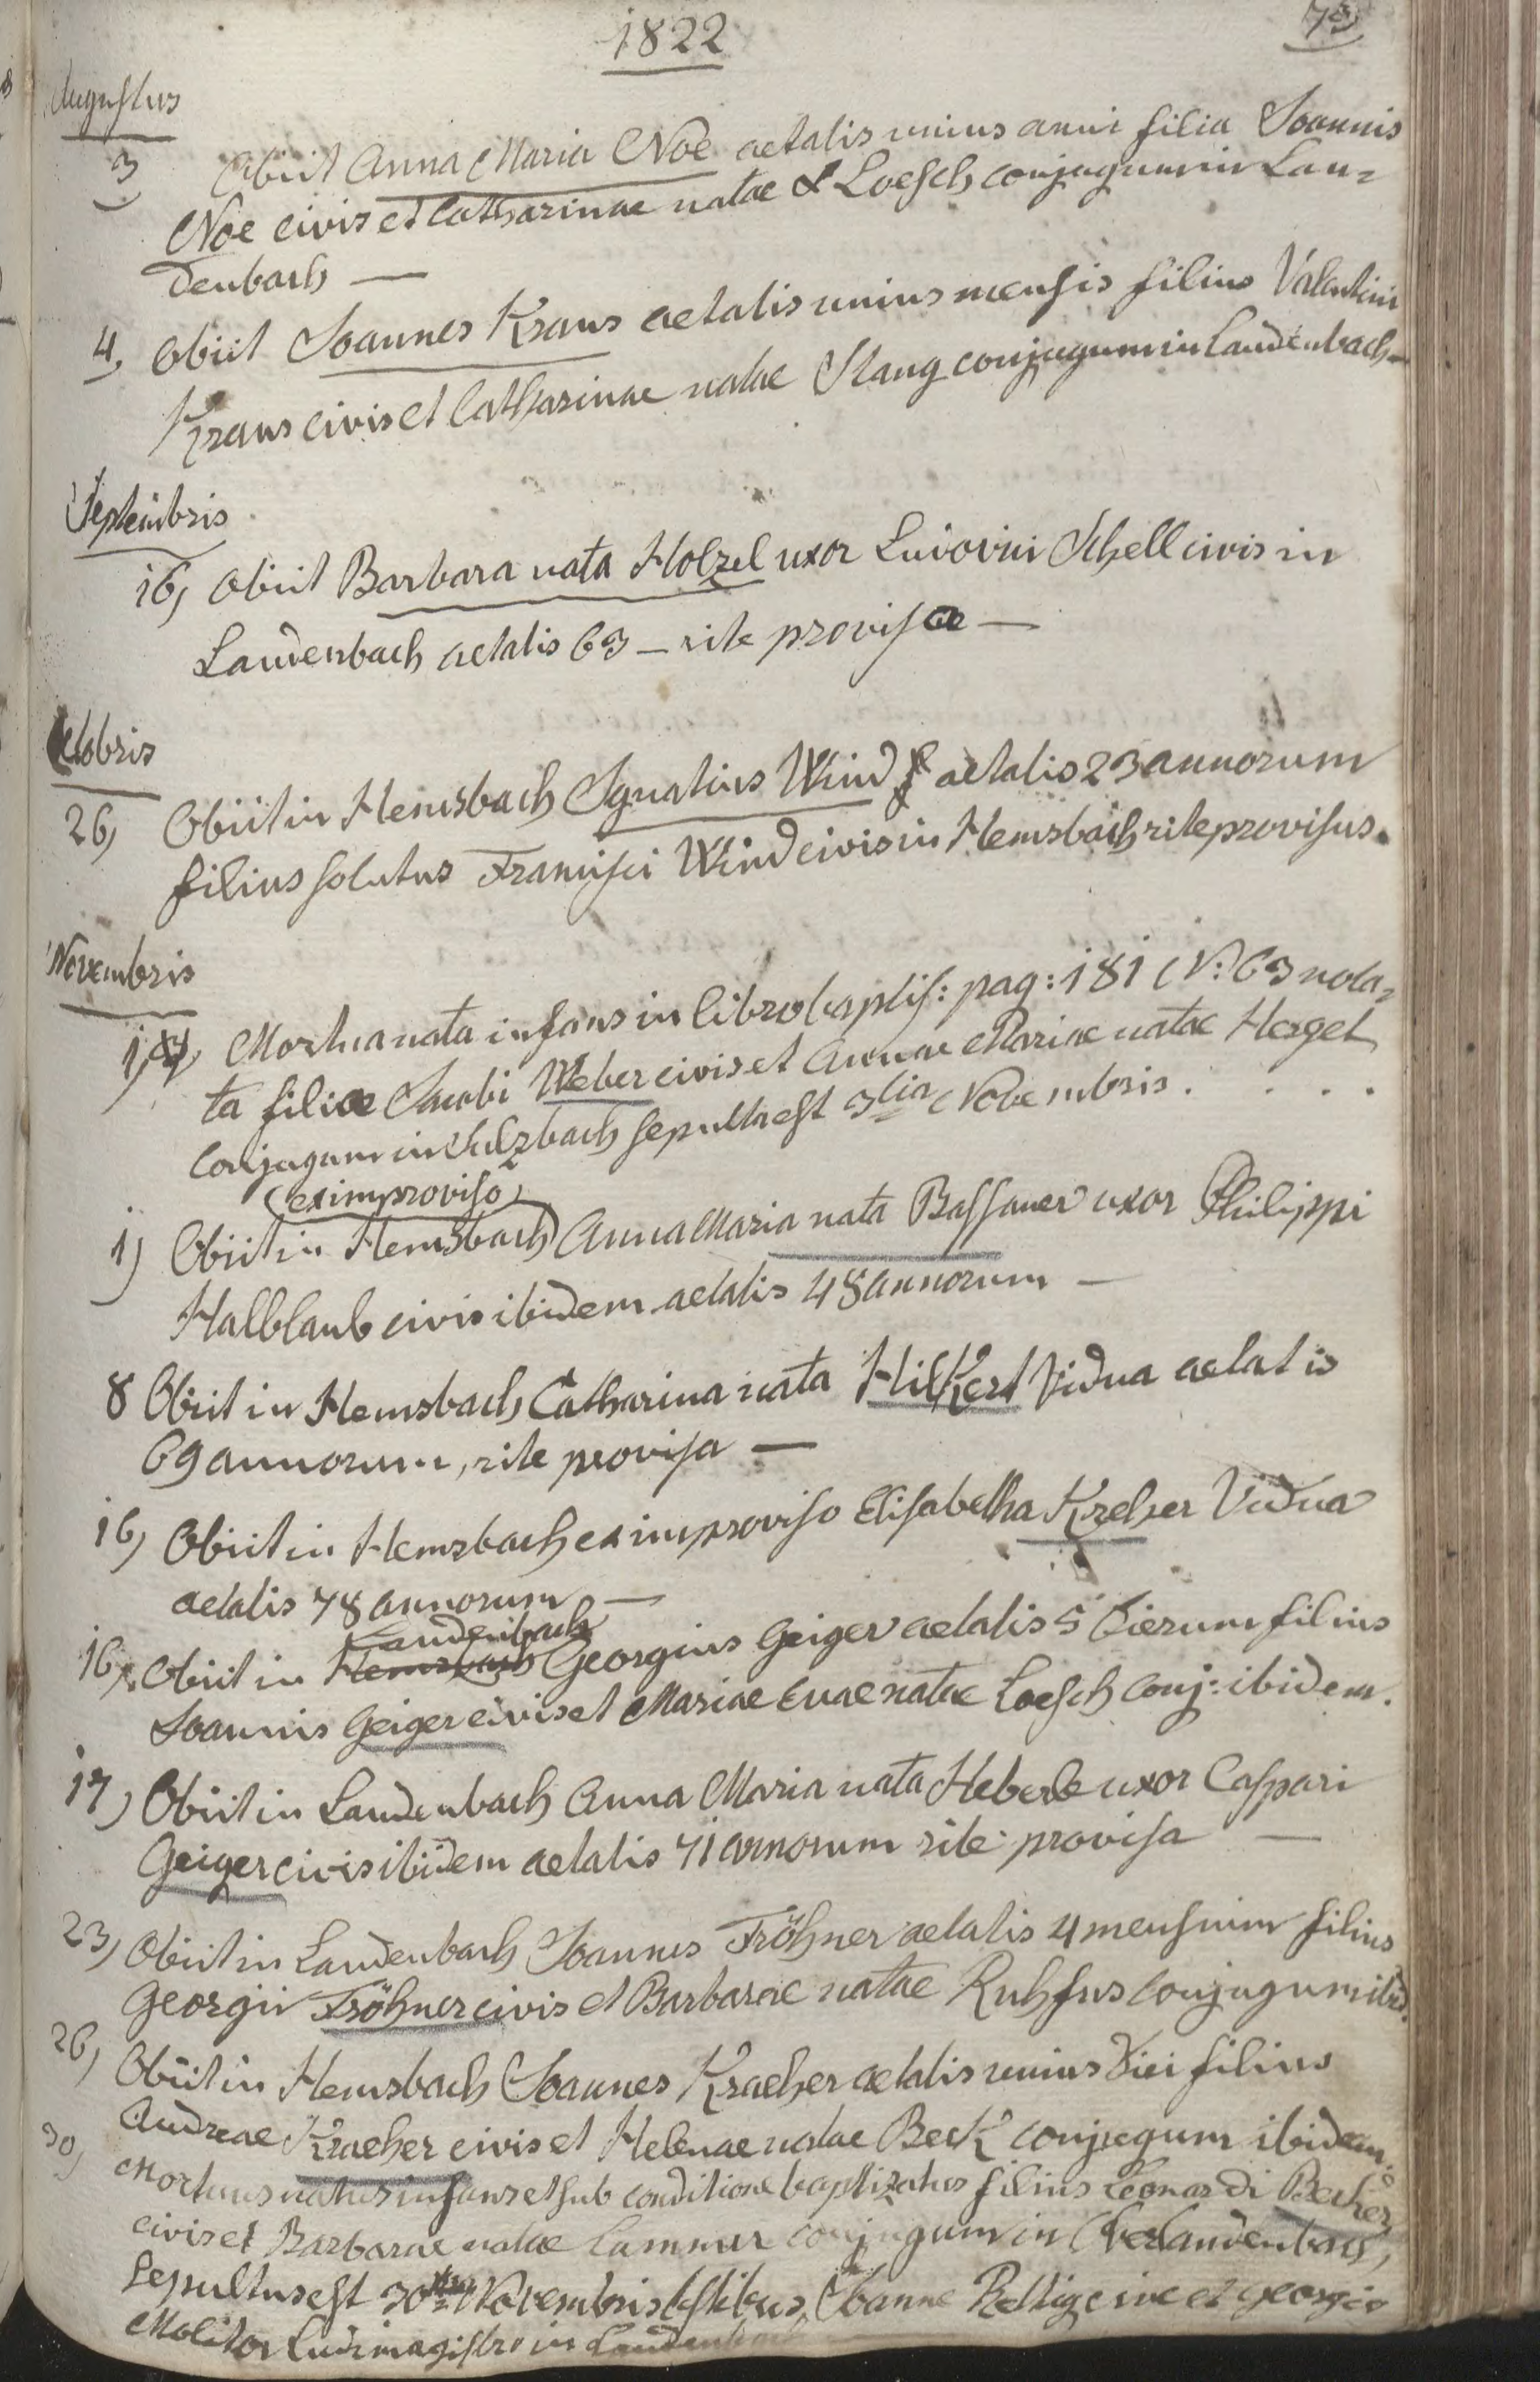 1822
73
Augustus
3 Obiit Anna Maria Noe aetatis unius anni filia Joannis
Noe civis et Catharinae natae Loesch conjugum in Lau=
denbach —
4, obiit Joannes Kraus aetatis unius mensis filius Valentini
Kraus civis et Catharinae natae Stang conjugum in Laudenbach —
Septembris
16, obiit Barbara nata Holzel uxor Ludovici Schell civis in
Laudenbach aetatis 63 — rite provisa —
Octobris
26, Obiit in Hemsbach Ignatius Wind aetatis 23 annorum
filius solutus Francisci Wind civis in Hemsbach rite provisus.
Novembris
1, Mortua nata infans in libro baptis: pag: 181 N: 63 nota=
ta filia Jacobi Weber civis et Annae Mariae natae Herget
Conjugum in Sulzbach sepulta est 3tia Novembris . . . .
(ex improviso)
1) Obiit in Hemsbach Anna Maria nata Bassauer uxor Philippi
Halblaub civis ibidem aetatis 48 annorum —
8 Obiit in Hemsbach Catharina nata Hilkert Vidua aetatis
69 annorum, rite provisa —
16, Obiit in Hemsbach ex improviso Elisabetha Kreher Vidua
aetatis 78 annorum —
Laudenbach
16, Obiit in Hemsbach Georgius Geiger aetatis 5 dierum filius
Joannis Geiger civis et Mariae Evae natae Loesch conj: ibidem.
17, Obiit in Laudenbach Anna Maria nata Heberle uxor Caspari
Geiger civis ibidem aetatis 71 annorum rite provisa —
23, Obiit in Laudenbach Joannes Fröhner aetatis 4 mensium filius
Georgii Fröhner civis et Barbarae natae Ruhfus conjugum ibid.
26, Obiit in Hemsbach Joannes Kraeher aetatis unius diei filius
Andreae Kraeher civis et Helenae natae Beck conjugum ibidem.
30, Mortuus natus infans et sub conditione baptizatus filius Leonardi Becker
civis et Barbarae natae Lammer conjugum in Oberlaudenbach,
Sepultus est 30 Novembris testibus, Joanne Rettig cive et Georgio
Molitor Ludimagistro in Laudenbach